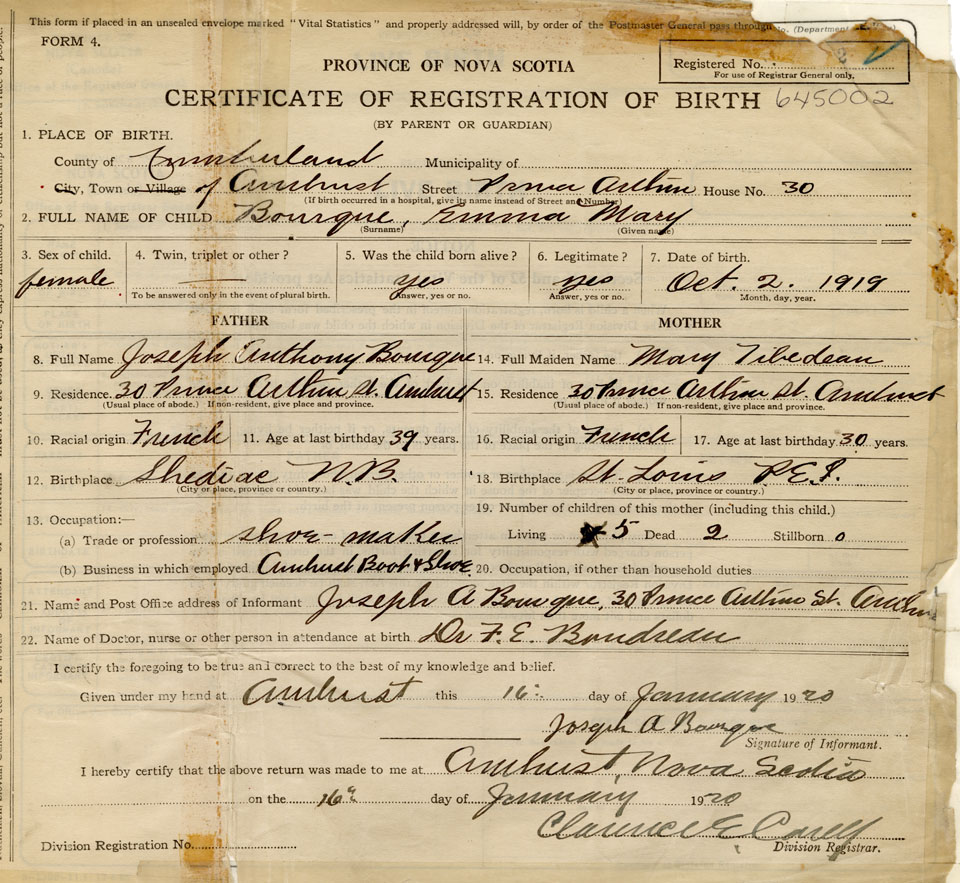 This form if placed in an unsealed envelope marked "Vital Statistics" and properly addressed will, by order of the Postmaster General pass through
FORM 4.
PROVINCE OF NOVA SCOTIA
Registered No.
For use of Registrar General only.
CERTIFICATE OF REGISTRATION OF BIRTH 645002
(BY PARENT OR GUARDIAN)
1. PLACE OF BIRTH.
County of Cumberland Municipality of
City, Town or Village of Amherst Street Prince Arthur House No. 30
(If birth occurred in a hospital, give its name instead of Street and Number)
2. FULL NAME OF CHILD Bourque, Emma Mary
(Surname) (Given name)
3. Sex of child. 4. Twin, triplet or other? 5. Was the child born alive? 6. Legitimate? 7. Date of birth.
female yes yes Oct. 2. 1919
To be answered only in the event of plural birth. Answer, yes or no. Answer, yes or no. Month, day, year.
FATHER MOTHER
8. Full Name Joseph Anthony Bourque 14. Full Maiden Name Mary Tibedeau
9. Residence. 30 Prince Arthur St. Amherst 15. Residence 30 Prince Arthur St. Amherst
(Usual place of abode.) If non-resident, give place and province. (Usual place of abode.) If non-resident, give place and province.
10. Racial origin French 11. Age at last birthday 39 years. 16. Racial origin French 17. Age at last birthday 30 years.
12. Birthplace Shediac N.B. 18. Birthplace St. Louis P.E.I.
(City or place, province or country.) (City or place, province or country.)
13. Occupation:— 19. Number of children of this mother (including this child.)
(a) Trade or profession shoe-maker Living 5 Dead 2 Stillborn 0
(b) Business in which employed Amherst Boot & Shoe 20. Occupation, if other than household duties
21. Name and Post Office address of Informant Joseph A Bourque, 30 Prince Arthur St. Amherst
22. Name of Doctor, nurse or other person in attendance at birth Dr F. E. Boudreau
I certify the foregoing to be true and correct to the best of my knowledge and belief.
Given under my hand at Amherst this 16th day of January 1920
Joseph A Bourque
Signature of Informant.
I hereby certify that the above return was made to me at Amherst, Nova Scotia
on the 16th day of January 1920
Clarence E
Division Registration No. Division Registrar.